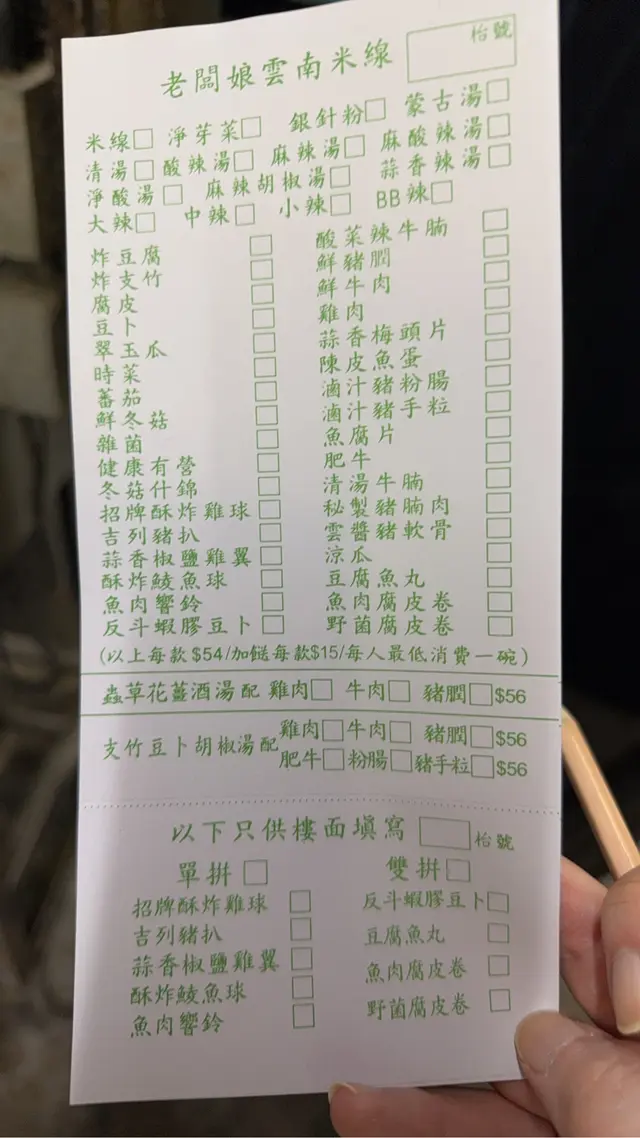 枱號
老闆娘雲南米線
米線□ 淨芽菜□ 銀針粉□ 蒙古湯□
清湯□ 酸辣湯□ 麻辣湯□ 麻酸辣湯□
淨酸湯□ 麻辣胡椒湯□ 蒜香辣湯□
大辣□ 中辣□ 小辣□ BB辣□
炸豆腐□
炸支竹□
腐皮□
豆卜□
翠玉瓜□
時菜□
蕃茄□
鮮冬菇□
雜菌□
健康有營□
冬菇什錦□
招牌酥炸雞球□
吉列豬扒□
蒜香椒鹽雞翼□
酥炸鯪魚球□
魚肉響鈴□
反斗蝦膠豆卜□
酸菜辣牛腩□
鮮豬膶□
鮮牛肉□
雞肉□
蒜香梅頭片□
陳皮魚蛋□
滷汁豬粉腸□
滷汁豬手粒□
魚腐片□
肥牛□
清湯牛腩□
秘製豬腩肉□
雲醬豬軟骨□
涼瓜□
豆腐魚丸□
魚肉腐皮卷□
野菌腐皮卷□
(以上每款$54/加餸每款$15/每人最低消費一碗)
蟲草花薑酒湯配 雞肉□ 牛肉□ 豬膶□$56
支竹豆卜胡椒湯配 雞肉□ 牛肉□ 豬膶□$56
肥牛□ 粉腸□ 豬手粒□$56
以下只供樓面填寫 □枱號
單拼□ 雙拼□
招牌酥炸雞球□
吉列豬扒□
蒜香椒鹽雞翼□
酥炸鯪魚球□
魚肉響鈴□
反斗蝦膠豆卜□
豆腐魚丸□
魚肉腐皮卷□
野菌腐皮卷□